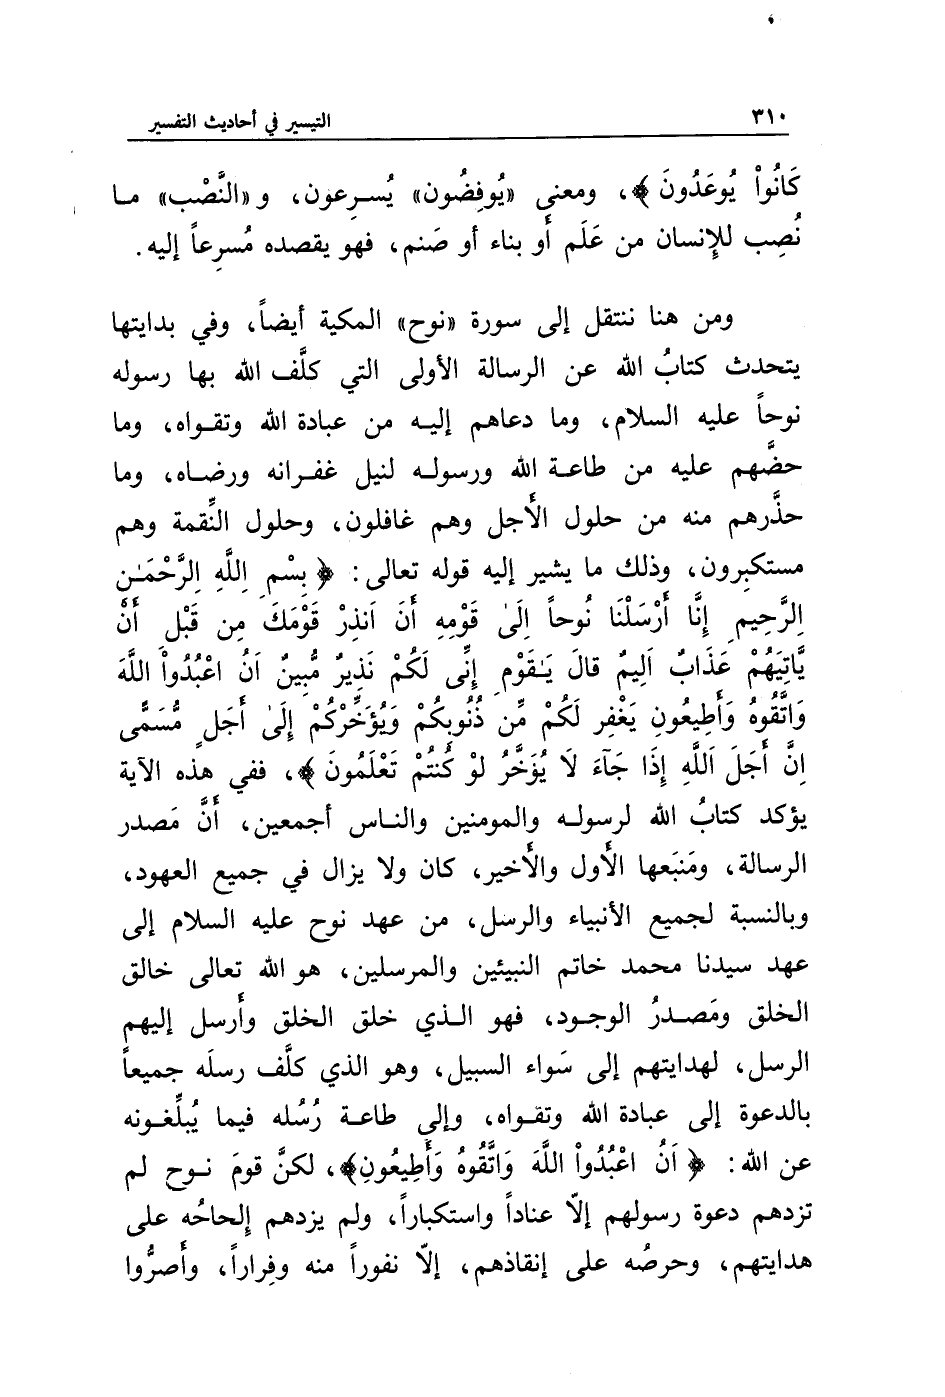 ٣١٠
التيسير في أحاديث التفسير
كَانُواْ يُوعَدُونَ ﴾، ومعنى «يُوفِضُون» يُسـرِعون، و«النَّصْب» مـا
نُصِب للإِنسان من عَلَم أو بناء أو صَنم، فهو يقصده مُسرِعاً إليه.
ومن هنا ننتقل إلى سورة «نوح» المكية أيضاً، وفي بدايتها
يتحدث كتابُ الله عن الرسالة الأولى التي كلَّف الله بها رسوله
نوحاً عليه السلام، وما دعاهم إليـه من عبادة الله وتقـواه، وما
حضَّهم عليه من طاعـة الله ورسولـه لنيل غفـرانه ورضـاه، وما
حذَّرهم منه من حلول الأَجل وهم غافلون، وحلول النِّقمة وهم
مستكبِرون، وذلك ما يشير إليه قوله تعالى: ﴿ بِسْمِ اِللَّهِ اِلرَّحْمَـٰنِ
اِلرَّحِيمِ إِنَّا أَرْسَلْنَا نُوحاً اِلَىٰ قَوْمِهِ أَنَ اَنذِرْ قَوْمَكَ مِن قَبْلِ أَنْ
يَّاتِيَهُمْ عَذَابٌ اَلِيمٌ قالَ يَـٰقَوْمِ إِنِّى لَكُمْ نَذِيرٌ مُّبِينٌ اَنُ اعْبُدُواْ اللَّهَ
وَاتَّقُوهُ وَأَطِيعُونِ يَغْفِر لَكُمْ مِّن ذُنُوبِكُمْ وَيُؤَخِّرْكُمْ إِلَىٰ أَجَلٍ مُّسَمًّى
اِنَّ أَجَلَ اَللَّهِ إِذَا جَآءَ لَا يُؤَخَّرُ لوْ كُنتُمْ تَعْلَمُونَ ﴾، ففي هذه الآية
يؤكد كتابُ الله لرسولـه والمومنين والنـاس أجمعين، أَنَّ مَصدر
الرسالة، ومَنبَعها الأَول والأَخير، كان ولا يزال في جميع العهود،
وبالنسبة لجميع الأنبياء والرسل، من عهد نوح عليه السلام إلى
عهد سيدنا محمد خاتم النبيئين والمرسلين، هو الله تعالى خالق
الخلق ومَصـدرُ الوجـود، فهو الـذي خلق الخلق وأَرسل إليهم
الرسل، لهدايتهم إلى سَواء السبيل، وهو الذي كلَّف رسلَه جميعاً
بالدعوة إلى عبادة الله وتقـواه، وإلى طاعـة رُسُله فيما يُبلِّغـونه
عن الله: ﴿ اَنُ اعْبُدُواْ اللَّهَ وَاتَّقُوهُ وَأَطِيعُونِ﴾، لكنَّ قومَ نـوح لم
تزدهم دعوة رسولهم إلاّ عناداً واستكباراً، ولم يزدهم إِلحاحُه على
هدايتهم، وحرصُه على إنقاذهم، إلاّ نفوراً منه وفِراراً، وأَصرُّوا